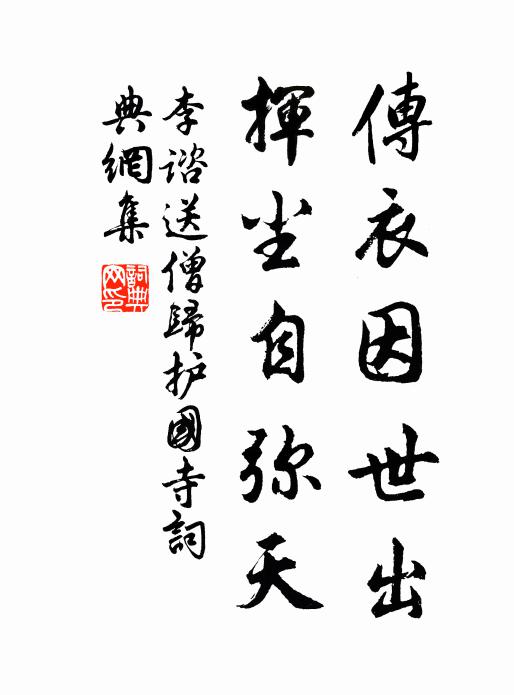 傳衣因世出
揮尘自弥天
李諮送僧歸护國寺詞
典網集
詞典網印